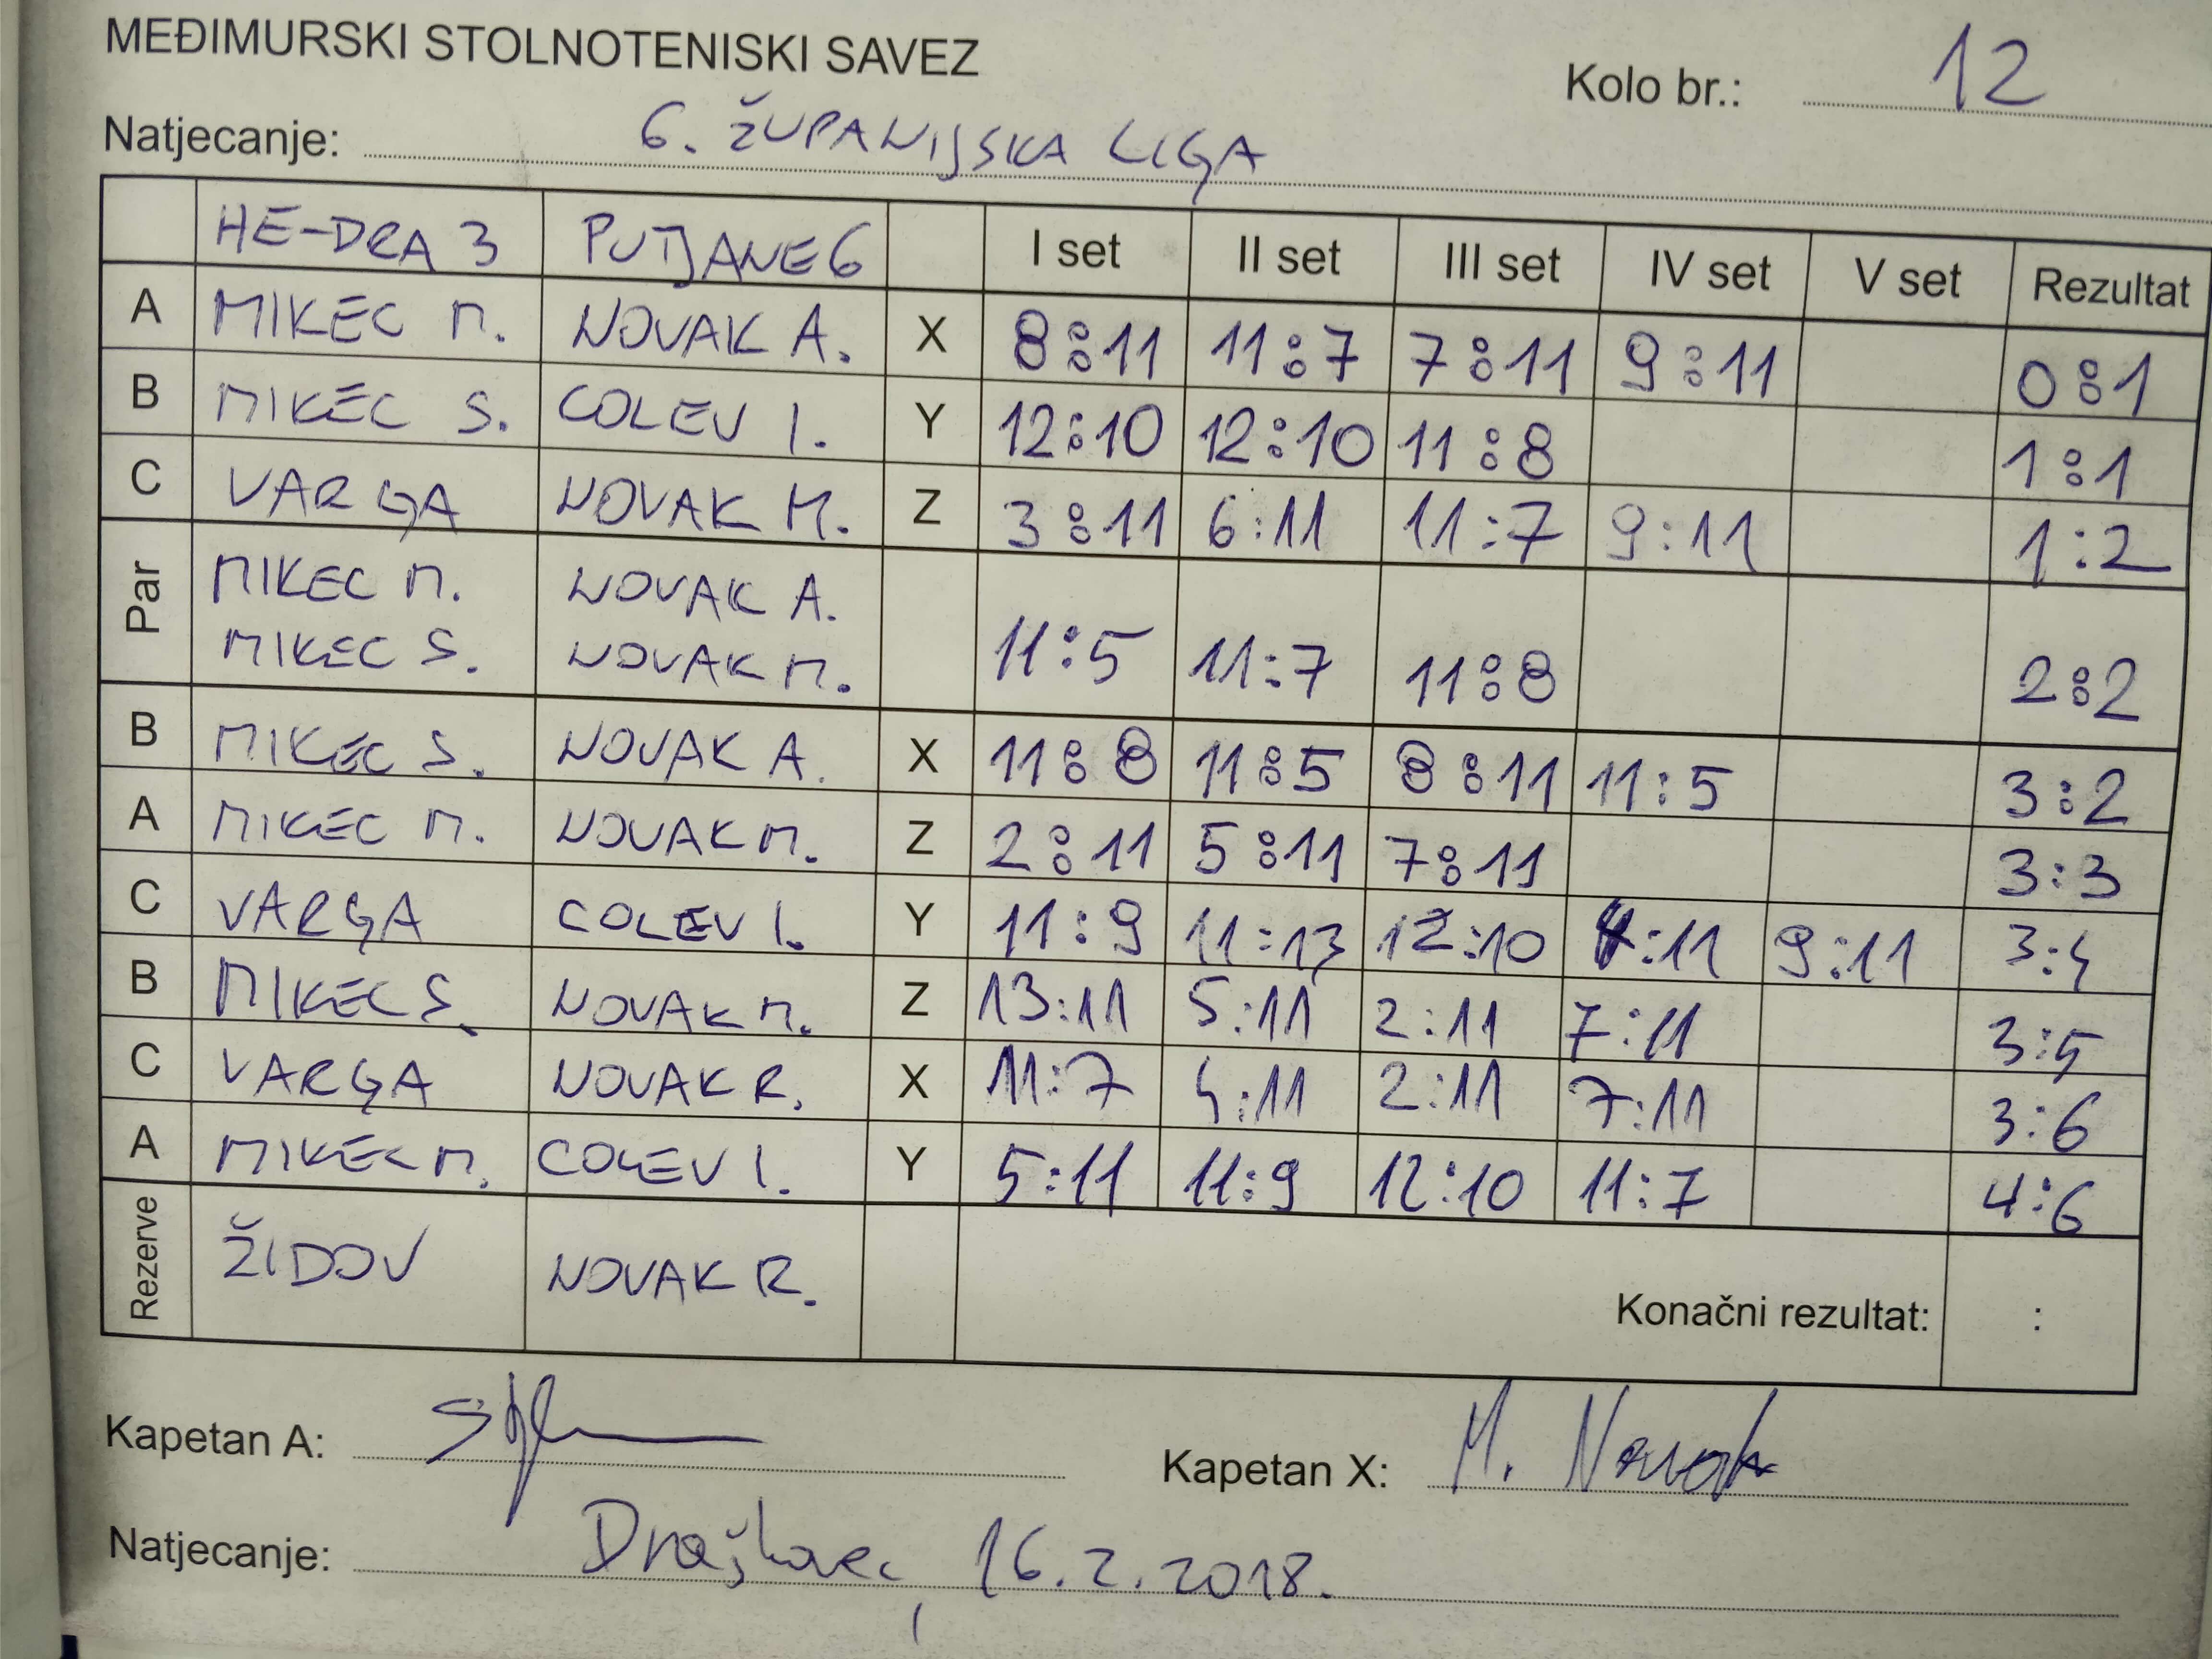 MEĐIMURSKI STOLNOTENISKI SAVEZ
Kolo br.: 12
Natjecanje: 6. ŽUPANIJSKA LIGA
HE-DRA 3 PUTJANE 6 I set II set III set IV set V set Rezultat
A MIKEC M. NOVAK A. X 8:11 11:7 7:11 9:11 0:1
B MIKEC S. COLEV I. Y 12:10 12:10 11:8 1:1
C VARGA NOVAK M. Z 3:11 6:11 11:7 9:11 1:2
Par MIKEC M. NOVAK A.
MIKEC S. NOVAK M. 11:5 11:7 11:8 2:2
B MIKEC S. NOVAK A. X 11:8 11:5 8:11 11:5 3:2
A MIKEC M. NOVAK M. Z 2:11 5:11 7:11 3:3
C VARGA COLEV I. Y 11:9 11:13 12:10 :11 9:11 3:4
B MIKEC S. NOVAK M. Z 13:11 5:11 2:11 7:11 3:5
C VARGA NOVAK R. X 11:7 4:11 2:11 7:11 3:6
A MIKEC M. COLEV I. Y 5:11 11:9 12:10 11:7 4:6
Rezerve ŽIDOV NOVAK R. Konačni rezultat: :
Kapetan A: Kapetan X: M. Novak
Natjecanje: Draškovec, 16.2.2018.